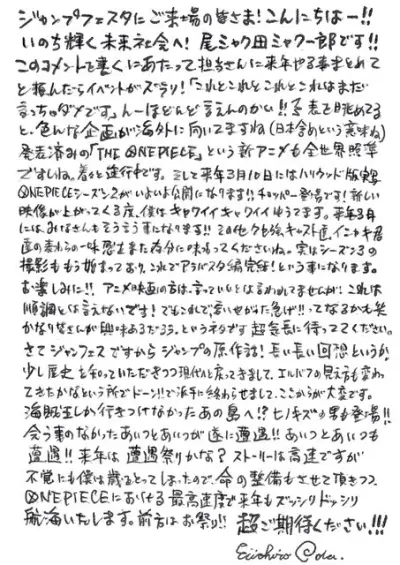 ジャンプフェスタにご来場の皆さま！こんにちはー！！
いのち輝く未来社会へ！尾ミャク田ミャク一郎です！！
このコメントを書くにあたって担当さんに来年やる事をくれ
と頼んだらイベントがズラリ！「これとこれとこれとこれはまだ
言っちゃダメです」んーほどんど言えんのかい！！予表を眺めてる
と、色んな企画が海外に向いてますね(日本含めという意味ね)
発表済みの「THE ONE PIECE」という新アニメも全世界照準
ですしね。着々と進行れです。そして来年3月10日にはハリウッド版実写
ONE PIECEシーズン2がいよいよ公開になります！！チョッパー登場です！新しい
映像が上がってくる度、僕はキャワイイキャワイイゆうてます。来年3月
には、みなさんもそう言う事になります！！その他クセ強キャスト達、イニャキ君
達の変わらぬ一味感もまた存分に味わってくださいね。実はシーズン3の
撮影ももう始まっており、これでアラバスタ編完結！という事になります。
お楽しみに！！アニメ映画の方は、言っていいとは言われてませんが！これは
順調とは言えないです！でもこれで言いせかせた急げ！！ってなるかも笑
かなり皆さんが興味あるだろう、というネタです超気長に待っててください。
さてジャンフェスですからジャンプの原作話！長い長い回想というか
少し歴史を知っていただきつつ現代へと戻ってきまして、エルバフの見え方も変わっ
てきたかなという所でドーン！！で派手に終わらせまして、ここからが大変です。
海賊王しか行きつけなかったあの島へ！？ヒノキズの男も登場！！
会う事のなかったあいつとあいつが遂に遭遇！！あいつとあいつも
遭遇！！来年は遭遇祭りかな？ストーリーは高速ですが
不覚にも僕は歳をとってしまったので、命の整備もさせて頂きつつ、
ONE PIECEにおける最高速度で来年もズッシリドッシリ
航海いたします。前方はお祭り！！超ご期待ください！！！
Eiichiro Oda.